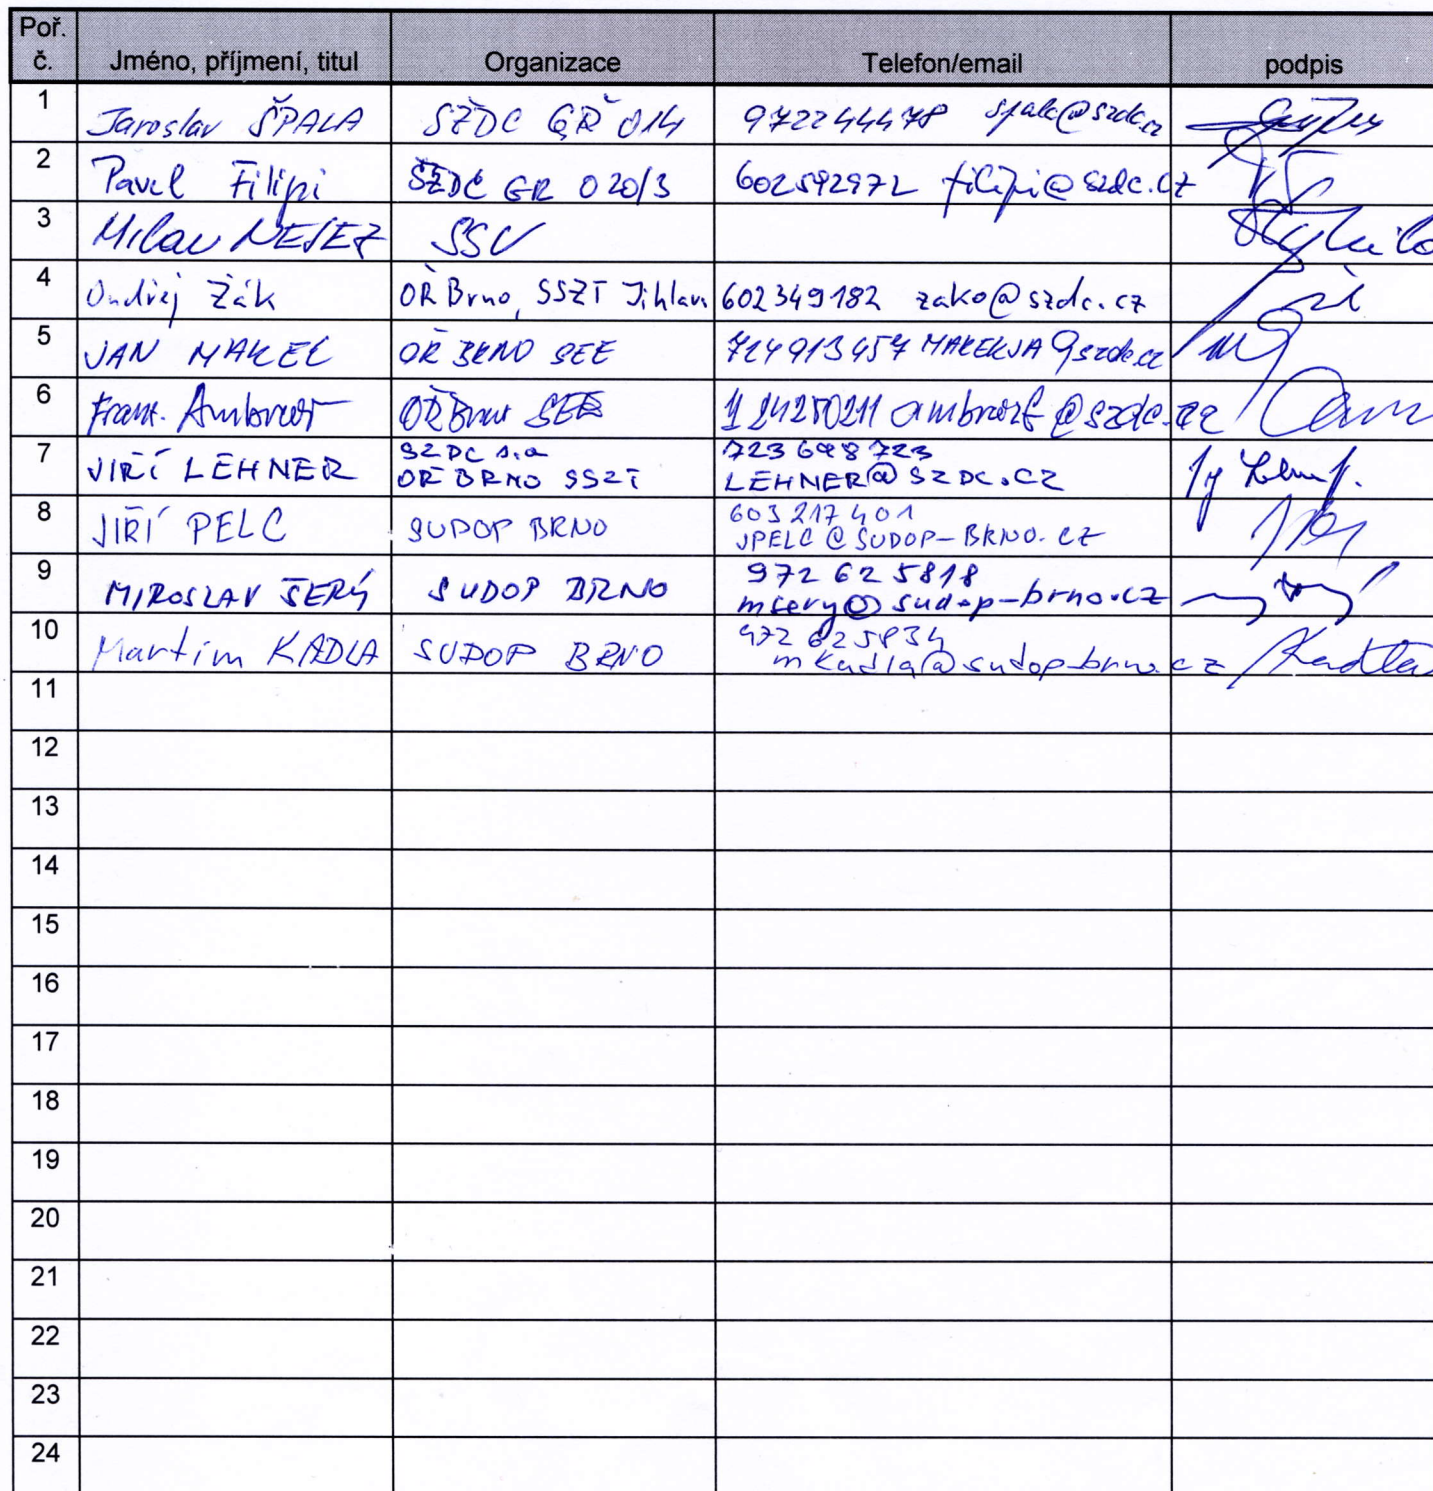 Poř. č. Jméno, příjmení, titul Organizace Telefon/email podpis
1 Jaroslav ŠPALA SŽDC GŘ O14 972244478 spala@szdc.cz
2 Pavel Filipi SŽDC GŘ O20/3 602592972 filipi@szdc.cz
3 Milan NESEZ SSV
4 Ondřej Žák OŘ Brno, SSZT Jihlava 602349182 zako@szdc.cz
5 JAN MAKEL OŘ BRNO SEE 724913457 @szdc.cz
6 Frant. OŘ Brno SEE @szdc.cz
7 JIŘÍ LEHNER SZDC s.o OŘ BRNO SSZT 723698723 LEHNER@SZDC.CZ
8 JIŘÍ PELC SUDOP BRNO 603217401 JPELC@SUDOP-BRNO.CZ
9 MIROSLAV ŠERÝ SUDOP BRNO 972 625818 msery@sudop-brno.cz
10 Martin KADLA SUDOP BRNO 972 625834 mkadla@sudop-brno.cz Kadla
11
12
13
14
15
16
17
18
19
20
21
22
23
24